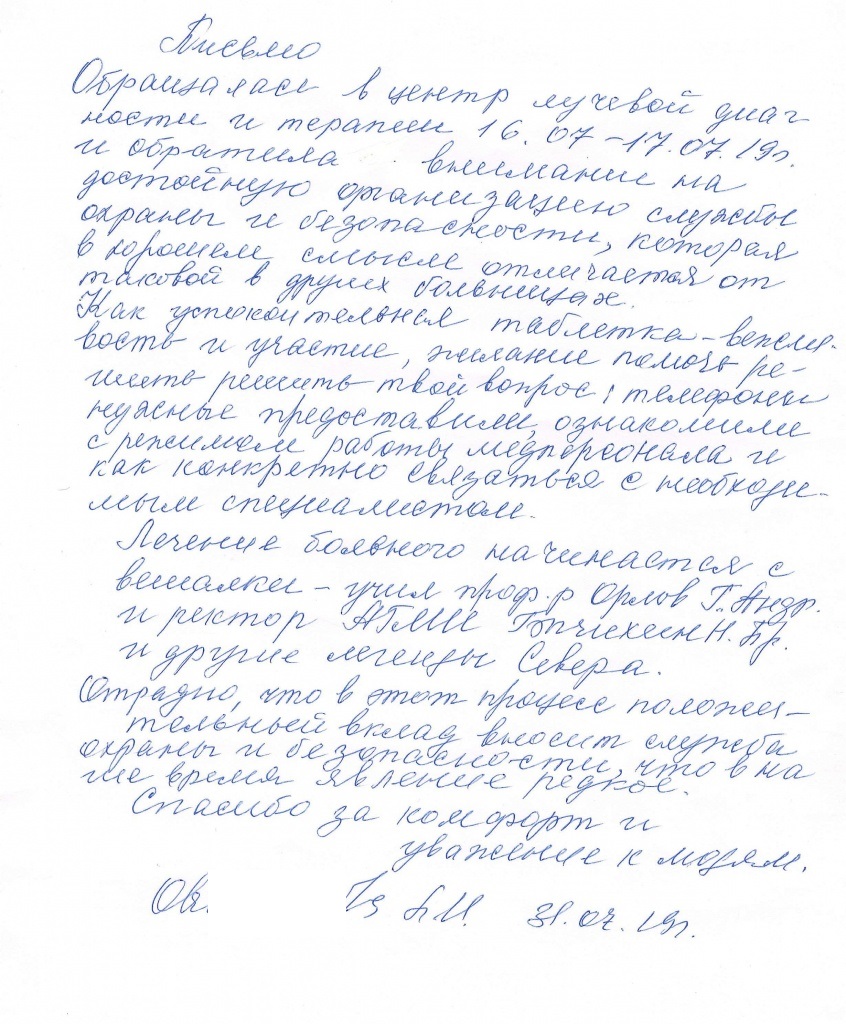 Письмо
Обращалась в центр лучевой диаг
ности и терапии 16.07-17.07.19г.
и обратила внимание на
достойную организацию службы
охраны и безопасности, которая
в хорошем смысле отличается от
таковой в других больницах.
Как успокоительная таблетка - вежли-
вость и участие, желание помочь ре-
шить решить твой вопрос: телефоны
нужные предоставили, ознакомили
с режимом работы медперсонала и
как конкретно связаться с необходи-
мым специалистом.
Лечение больного начинается с
вешалки - учил проф.р Орлов Г. Андр.
и ректор АГМИ Бычихин Н. Пр.
и другие легенды Севера.
Отрадно, что в этот процесс положи-
тельный вклад вносит служба
охраны и безопасности, что в на
ше время явление редкое.
Спасибо за комфорт и
уважение к людям.
31.07.19г.